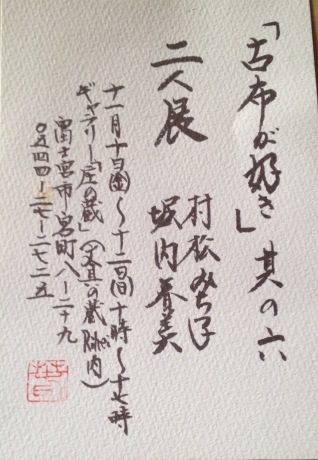 「古布が好き」其の六
二人展
村松みち子
堀内春美
十一月十日(金)〜十二日(日)十時〜十七時
ギャラリー「庄の蔵」(文具の蔵Rihei内)
富士宮市宮町八-二十九
〇五四四-二七-二七二五